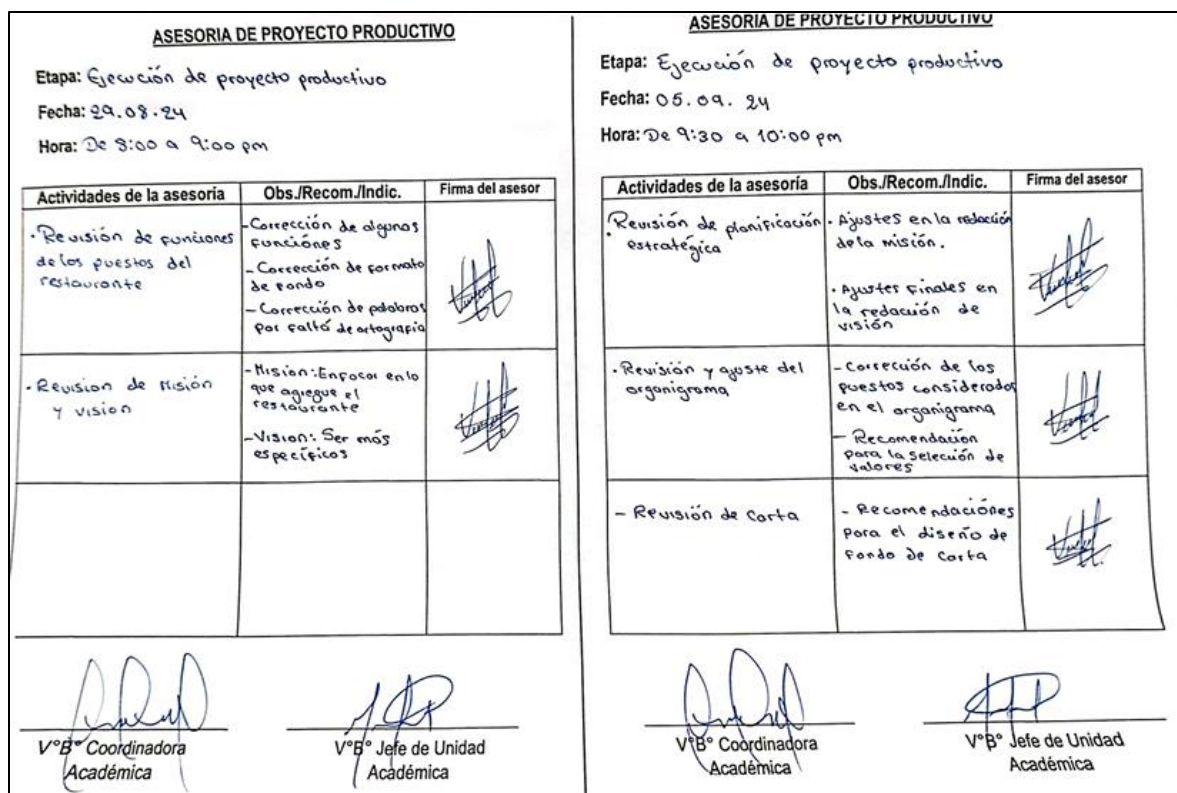 ASESORIA DE PROYECTO PRODUCTIVO
Etapa: Ejecución de proyecto productivo
Fecha: 29.08.24
Hora: De 8:00 a 9:00 pm
Actividades de la asesoría
Obs./Recom./Indic.
Firma del asesor
· Revisión de funciones
de los puestos del
restaurante
- Corrección de algunas
funciónes
- Corrección de formato
de fondo
- Corrección de palabras
por falta de ortografia
· Revision de Misión
y vision
- Misión: Enfocar en lo
que agregue el
restaurante
- Vision: Ser más
específicos
V°B° Coordinadora
Académica
V°B° Jefe de Unidad
Académica
ASESORIA DE PROYECTO PRODUCTIVO
Etapa: Ejecución de proyecto productivo
Fecha: 05.09.24
Hora: De 9:30 a 10:00 pm
Actividades de la asesoría
Obs./Recom./Indic.
Firma del asesor
· Revisión de planificación
estratégica
· Ajustes en la redacción
de la misión.
· Ajustes finales en
la redacción de
visión
· Revisión y ajuste del
organigrama
- Corrección de los
puestos considerados
en el organigrama
- Recomendación
para la selección de
valores
- Revisión de Carta
- Recomendaciónes
para el diseño de
fondo de carta
V°B° Coordinadora
Académica
V°B° Jefe de Unidad
Académica